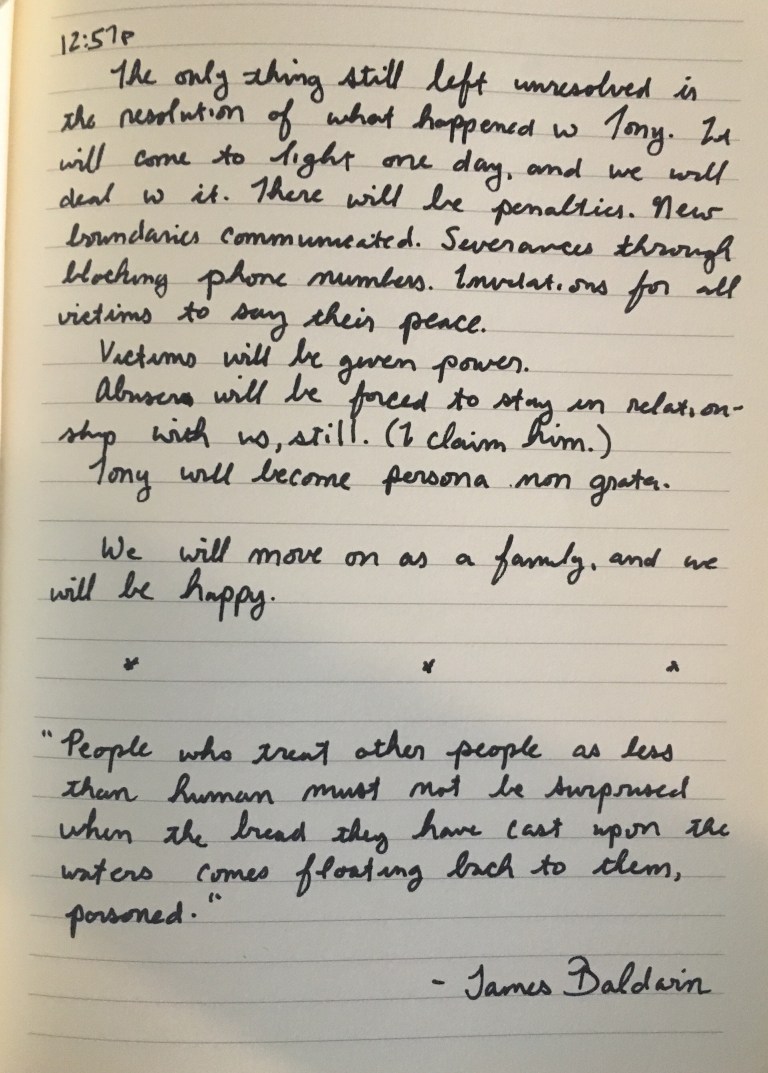 12:57p
The only thing still left unresolved is
the resolution of what happened w Tony. It
will come to light one day, and we will
deal w it. There will be penalties. New
boundaries communicated. Severances through
blocking phone numbers. Invitations for all
victims to say their peace.
Victims will be given power.
Abusers will be forced to stay in relation-
ship with us, still. (I claim him.)
Tony will become persona non grata.
We will move on as a family, and we
will be happy.
* * *
"People who treat other people as less
than human must not be surprised
when the bread they have cast upon the
waters comes floating back to them,
poisoned."
- James Baldwin